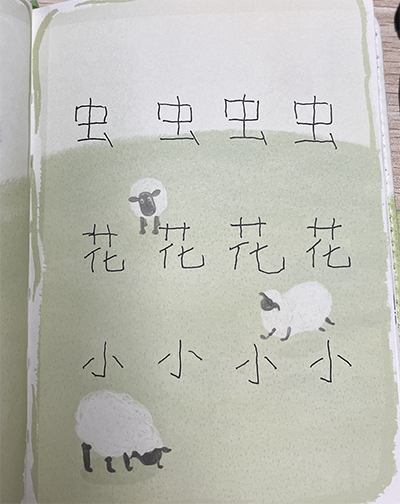 虫 虫 虫 虫
花 花 花 花
小 小 小 小